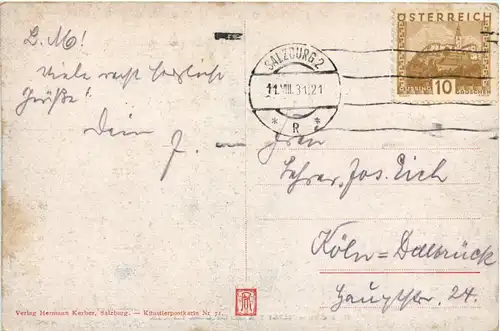 L. M!
Viele recht herzliche
Grüße!
Dein J.
ÖSTERREICH
10
GÜSSING
SALZBURG 2
11.VIII.31.21
* R *
Herrn
Lehrer Jos. Eich
Köln=Dellbrück
Hauptstr. 24.
Verlag Hermann Kerber, Salzburg. — Künstlerpostkarte Nr 51.